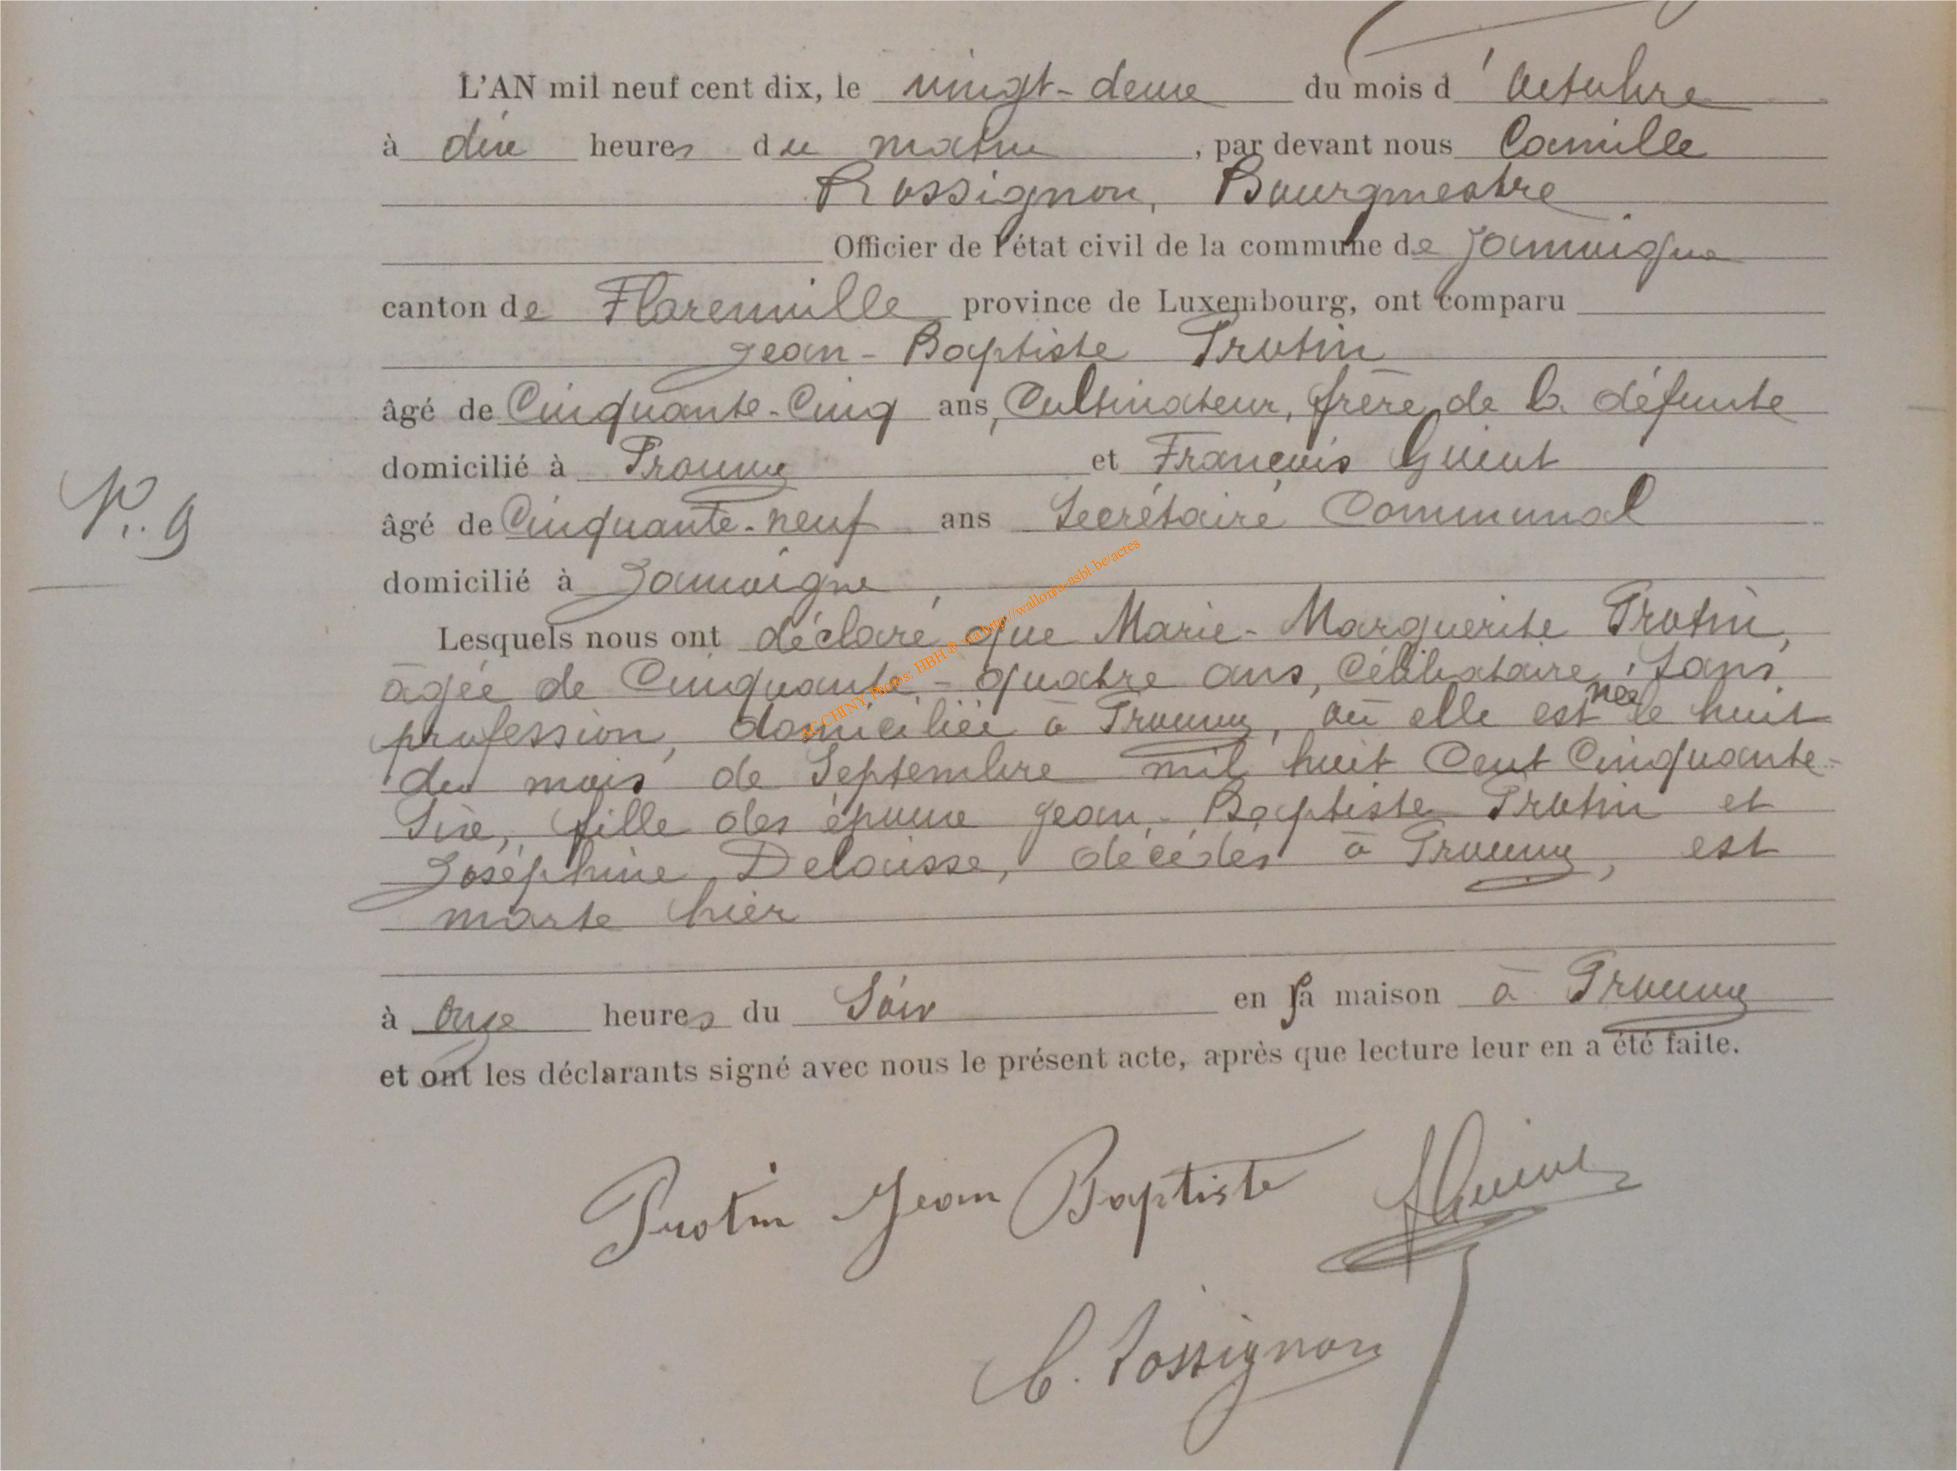 L'AN mil neuf cent dix, le vingt-deux du mois d'Octobre
à dix heures du matin, par devant nous Camille
Rossignon, Bourgmestre
Officier de l'état civil de la commune de Jamoigne
canton de Florenville province de Luxembourg, ont comparu
Jean-Baptiste Protin
âgé de Cinquante-Cinq ans, Cultivateur, frère de la défunte
domicilié à Prouvy et François Guiot
N°. 9
âgé de Cinquante-neuf ans Secrétaire Communal
domicilié à Jamoigne,
Lesquels nous ont déclaré que Marie-Marguerite Protin,
âgée de Cinquante-quatre ans, Célibataire, sans
profession, domiciliée à Prouvy, où elle est née le huit
du mois de Septembre mil huit Cent Cinquante-
Six, fille des époux Jean-Baptiste Protin et
Joséphine Delaisse, décédés à Prouvy, est
morte hier
à onze heures du Soir en sa maison à Prouvy
et ont les déclarants signé avec nous le présent acte, après que lecture leur en a été faite.
Protin Jean Baptiste FGuiot
C. Rossignon